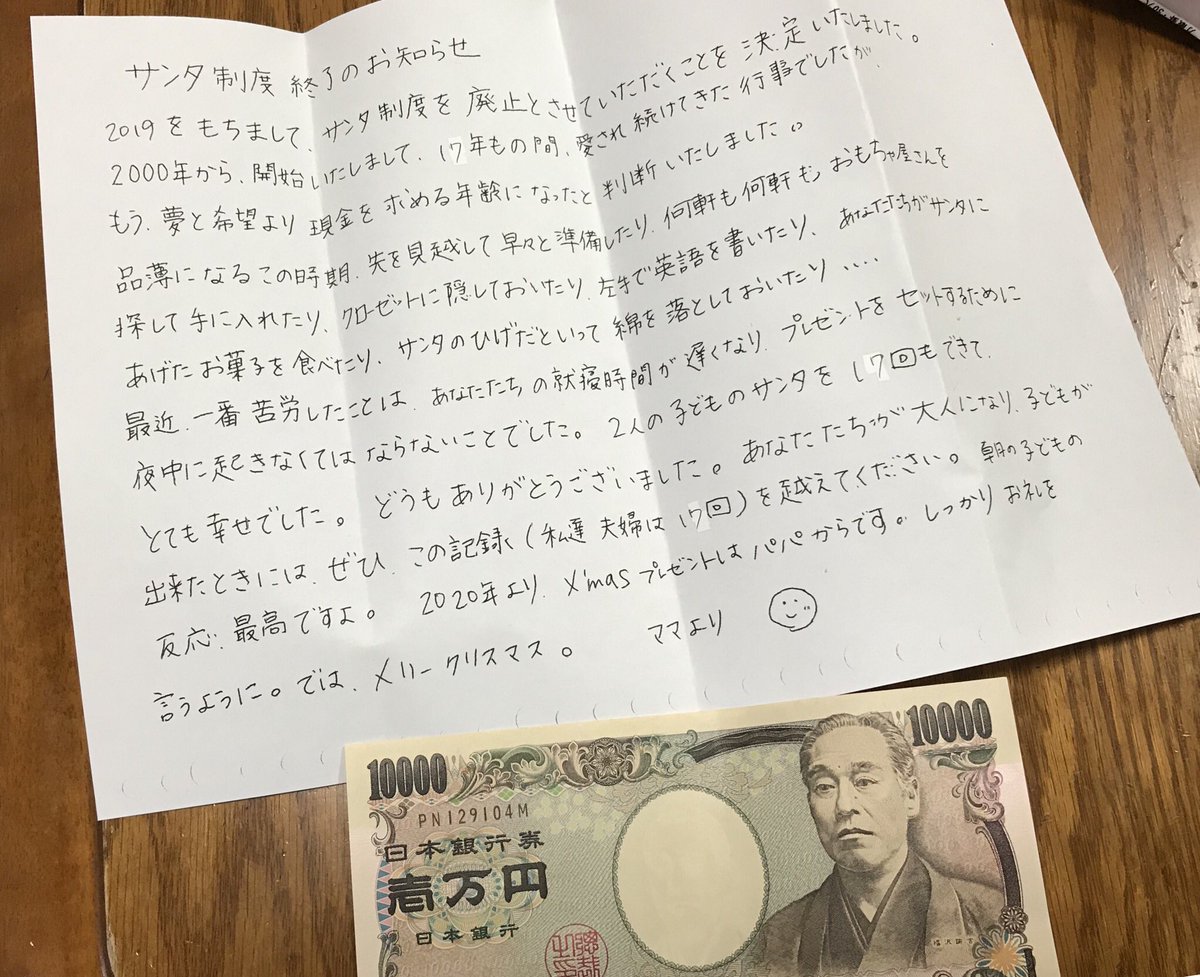 サンタ制度 終了のお知らせ
2019をもちまして、サンタ制度を廃止とさせていただくことを決定いたしました。
2000年から、開始いたしまして、17年もの間、愛され続けてきた行事でしたが、
もう、夢と希望より現金を求める年齢になったと判断いたしました。
品薄になるこの時期、先を見越して早々と準備したり、何軒も何軒もおもちゃ屋さんを
探して手に入れたり、クローゼットに隠しておいたり、左手で英語を書いたり、あなたたちがサンタに
あげたお菓子を食べたり、サンタのひげだといって綿を落としておいたり....
最近、一番苦労したことは、あなたたちの就寝時間が遅くなり、プレゼントをセットするために
夜中に起きなくてはならないことでした。2人の子どものサンタを17回もできて、
とても幸せでした。どうもありがとうございました。あなたたちが大人になり、子どもが
出来たときには、ぜひ、この記録(私達夫婦は17回)を越えてください。朝の子どもの
反応、最高ですよ。 2020年より、X'masプレゼントはパパからです。しっかりお礼を
言うように。では、メリークリスマス。 ママより
10000
10000
PN129104M
日本銀行券
壱万円
日本銀行
福沢諭吉